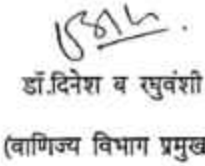 डॉ.दिनेश ब रघुवंशी
(वाणिज्य विभाग प्रमुख